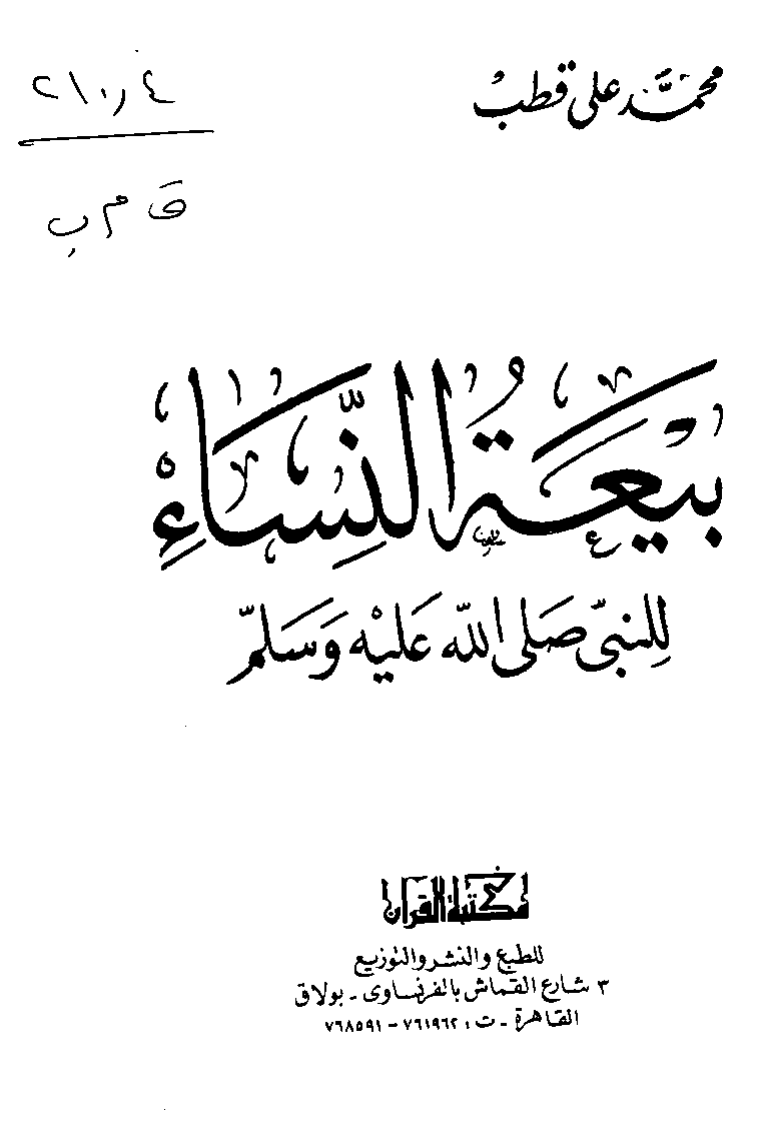 محمد علي قطب
٢١٠,٤
ق م ب
بَيعَةُ النِّسَاءِ
لِلنبيّ صَلى اللّه عَليْه وَسَلمّ
مكتبة القرآن
للطبع والنشر والتوزيع
٣ شارع القماش بالفرنساوى - بولاق
القاهرة - ت : ٧٦١٩٦٢ - ٧٦٨٥٩١